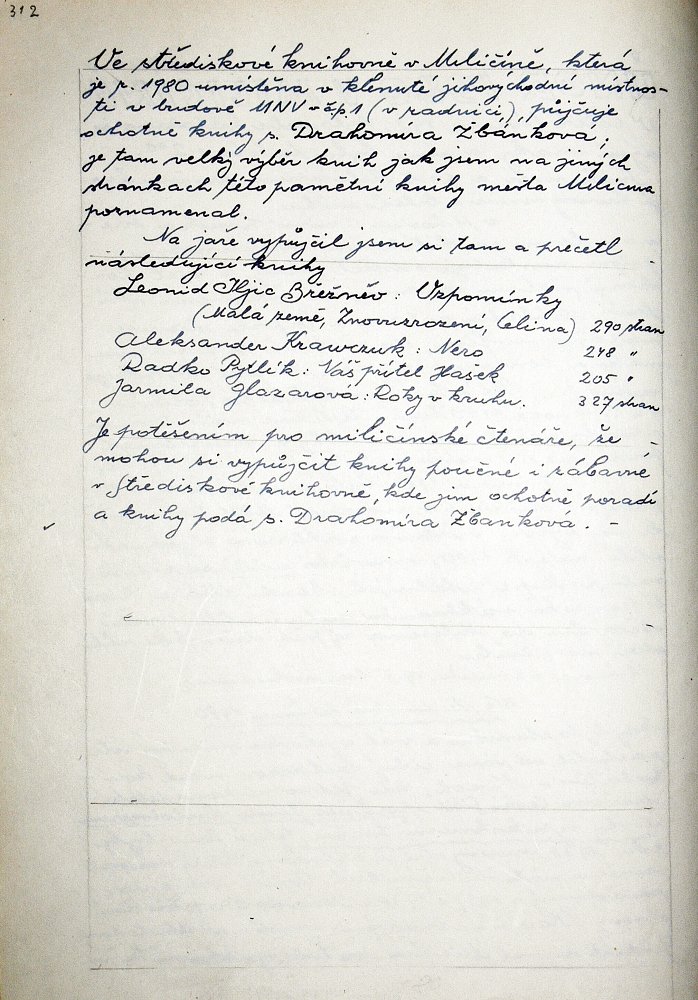 312
Ve střediskové knihovně v Miličíně, která
je r. 1980 umístěna v klenuté jihovýchodní místnos-
ti v budově MNV v čp. 1 (v radnici), půjčuje
ochotně knihy s. Drahomíra Zbánková,
je tam velký výběr knih jak jsem na jiných
stránkách této pamětní knihy města Miličína
poznamenal.
Na jaře vypůjčil jsem si tam a přečetl
následující knihy
Leonid Iljic Brěžněv: Vzpomínky
(Malá země, Znovuzrození, Celina) 290 stran
Aleksander Krawczuk: Nero 248 "
Radko Pytlík: Náš přítel Hašek 205 "
Jarmila Glazarová: Roky v kruhu. 327 stran
Je potěšením pro miličínské čtenáře, že -
mohou si vypůjčit knihy poučné i zábavné
v Střediskové knihovně, kde jim ochotně poradí
a knihy podá s. Drahomíra Zbanková. -